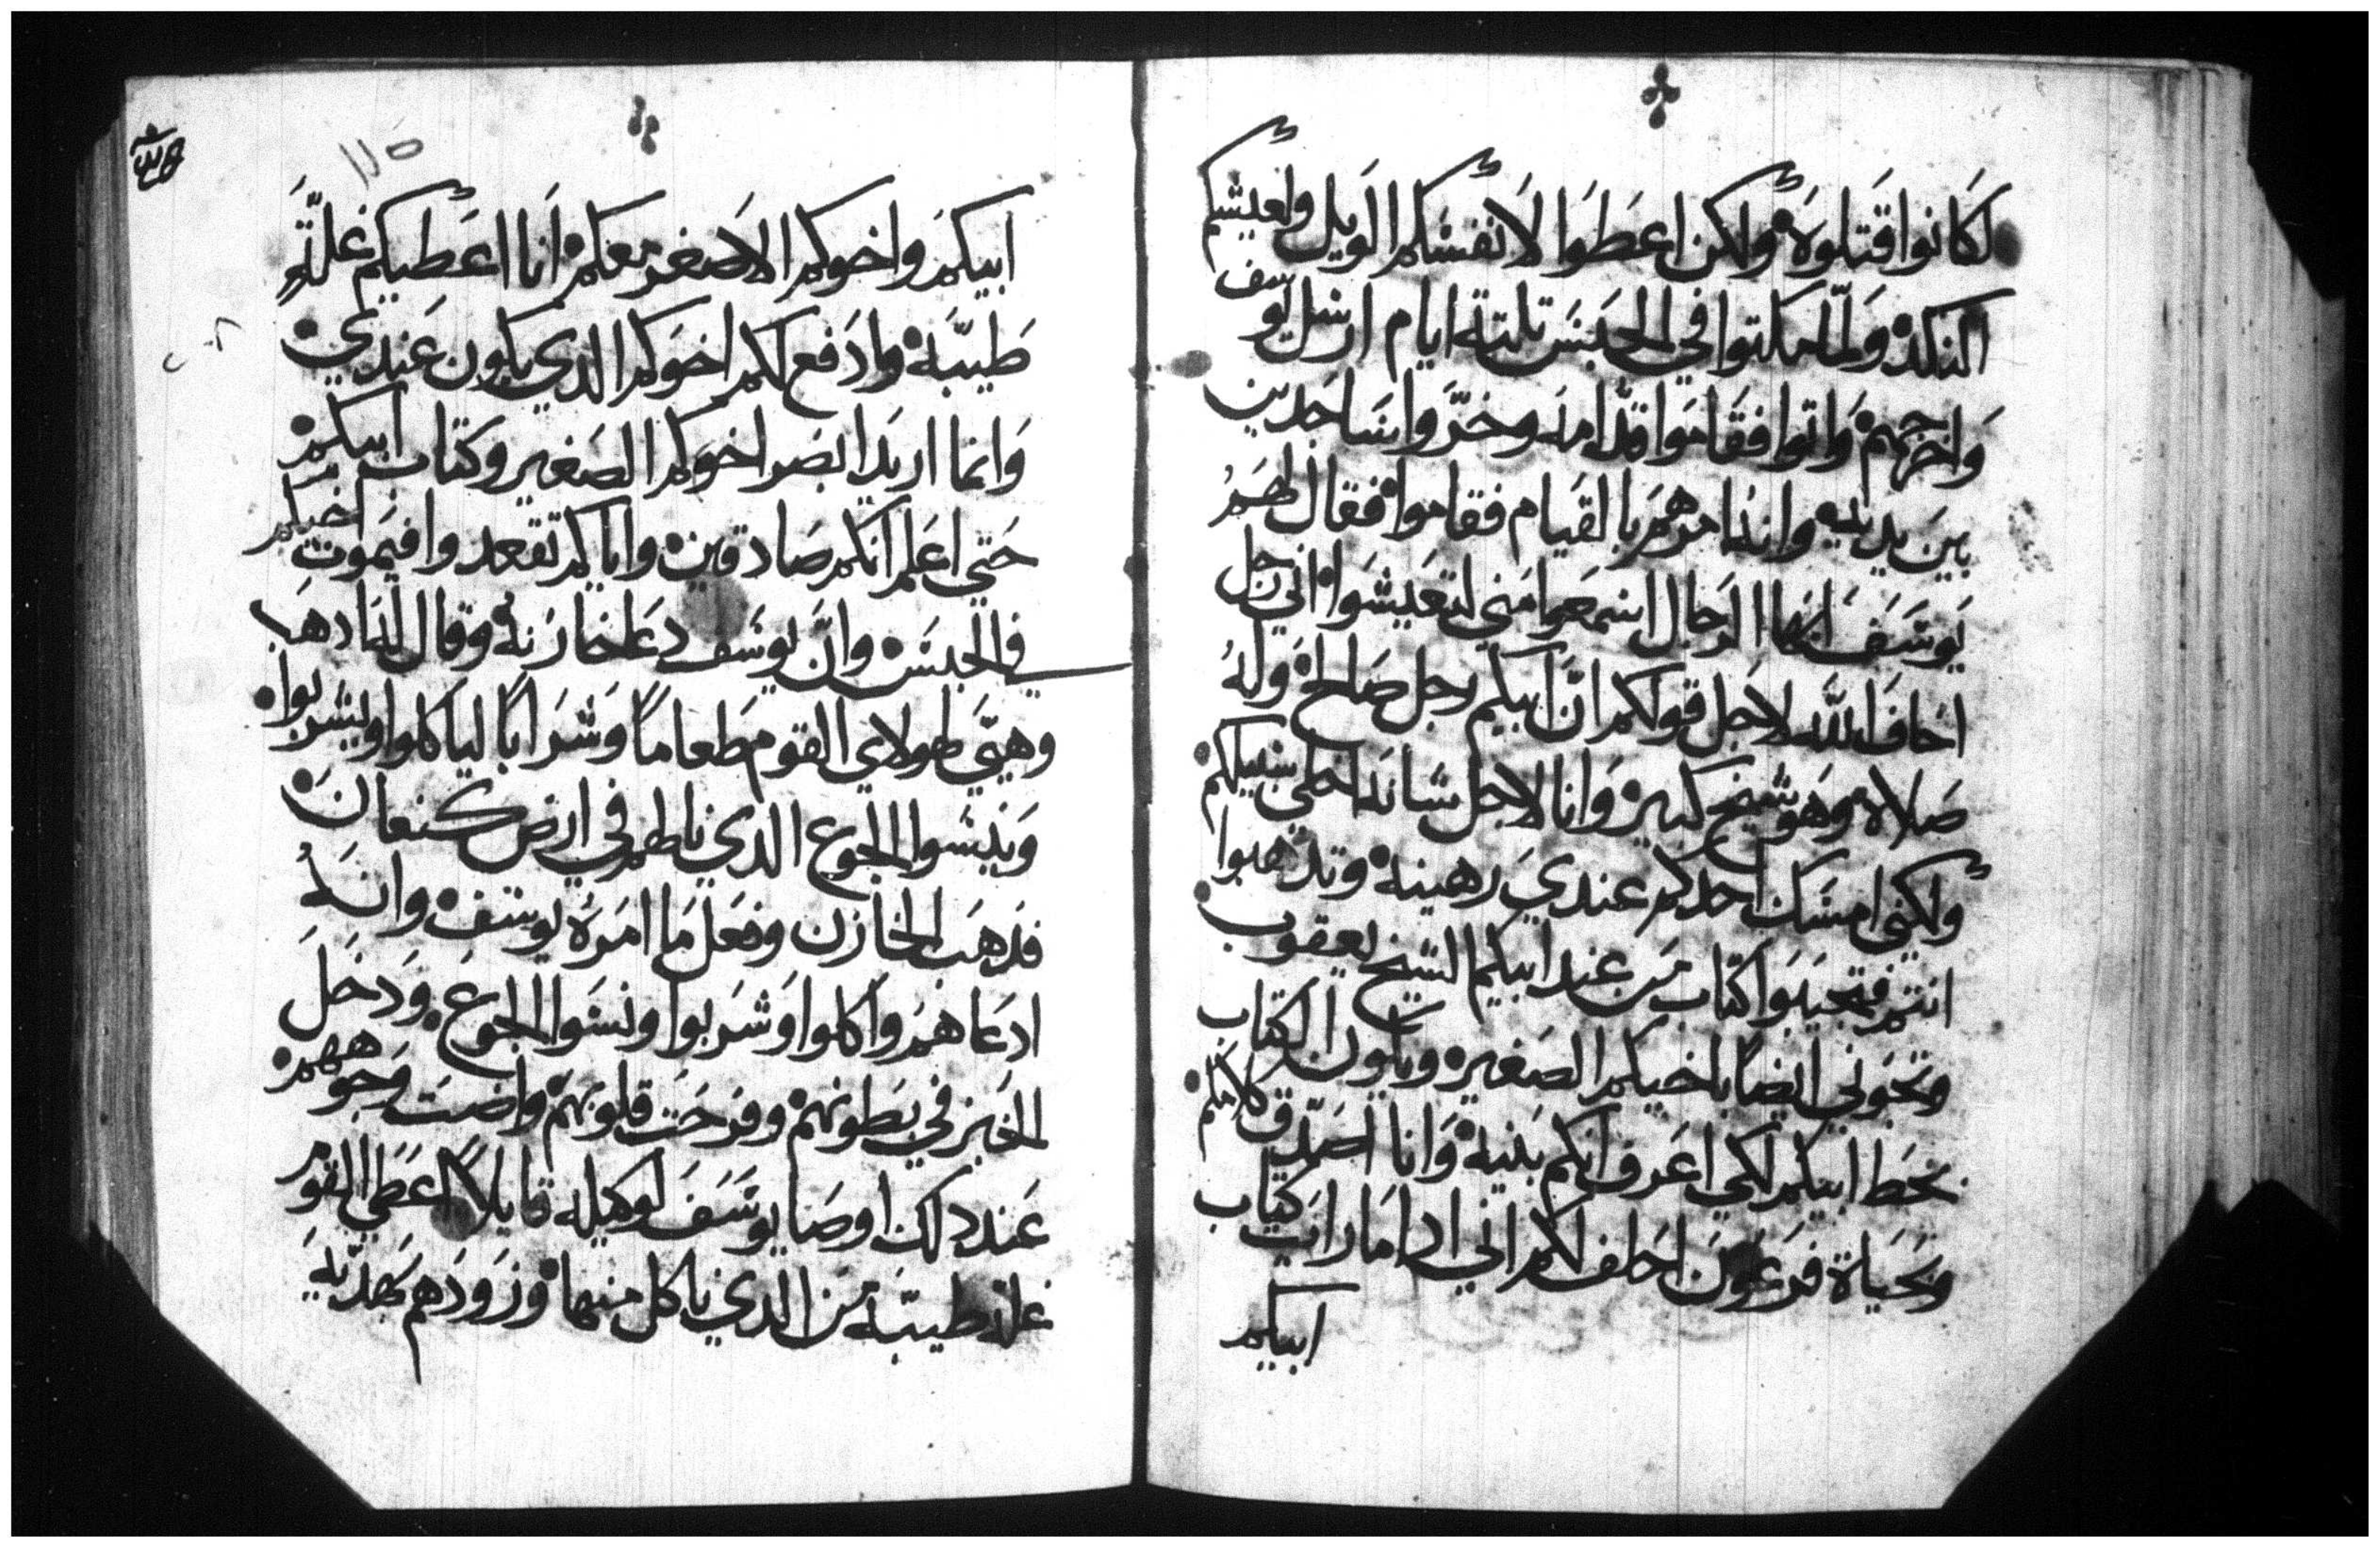 لكانوا قتلوه ولكن اعطوا لانفسكم الويل ولعيشكم
النكد ولما مكتوا في الحبس تلتة ايام ارسل يوسف
واخرجهم واتوا فقاموا قدامه وخروا ساجدين
بين يديه وانه امرهم بالقيام فقاموا فقال لهم
يوسف ايها الرجال اسمعوا مني لتعيشوا اني رجل
اخاف الله لاجل قولكم ان ابيكم رجل صالح وله
صلاه وهو شيخ كبير وانا لاجل شانه اخلي سبيلكم
ولكني امسك احدكم عندي رهينه وتدهبوا
انتم فتجيبوا كتاب من عند ابيكم الشيخ يعقوب
وتجوني ايضا باخيكم الصغير ويكون الكتاب
بخط ابيكم لكي اعرف انكم بنيه وانا اصدق كلامكم
وبحياة فرعون احلف لكم اني ادا ما رايت كتاب
ابيكم
١١٥
ابيكم واخوكم الاصغر معكم انا اعطيكم غله
طيبه وادفع لكم اخوكم الدي يكون عندي
وانما اريد ابصر اخوكم الصغير وكتاب ابيكم
حتي اعلم انكم صادقين واياكم تقعدوا فيموت اخيكم
في الحبس وان يوسف دعا خازنه وقال له ادهب
وهيي لهولاي القوم طعاما وشرابا لياكلوا ويشربوا
وينسوا الجوع الدي نالهم في ارض كنعان
فدهب الخازن وفعل ما امره يوسف وانه
ادعاهم واكلوا وشربوا ونسوا الجوع ودخل
الخبز في بطونهم وفرحت قلوبهم واضت وجوههم
عند دلك اوصا يوسف لوكيله قايلا اعطي القوم
غله طيبه من الدي ناكل منها وزودهم بهديه